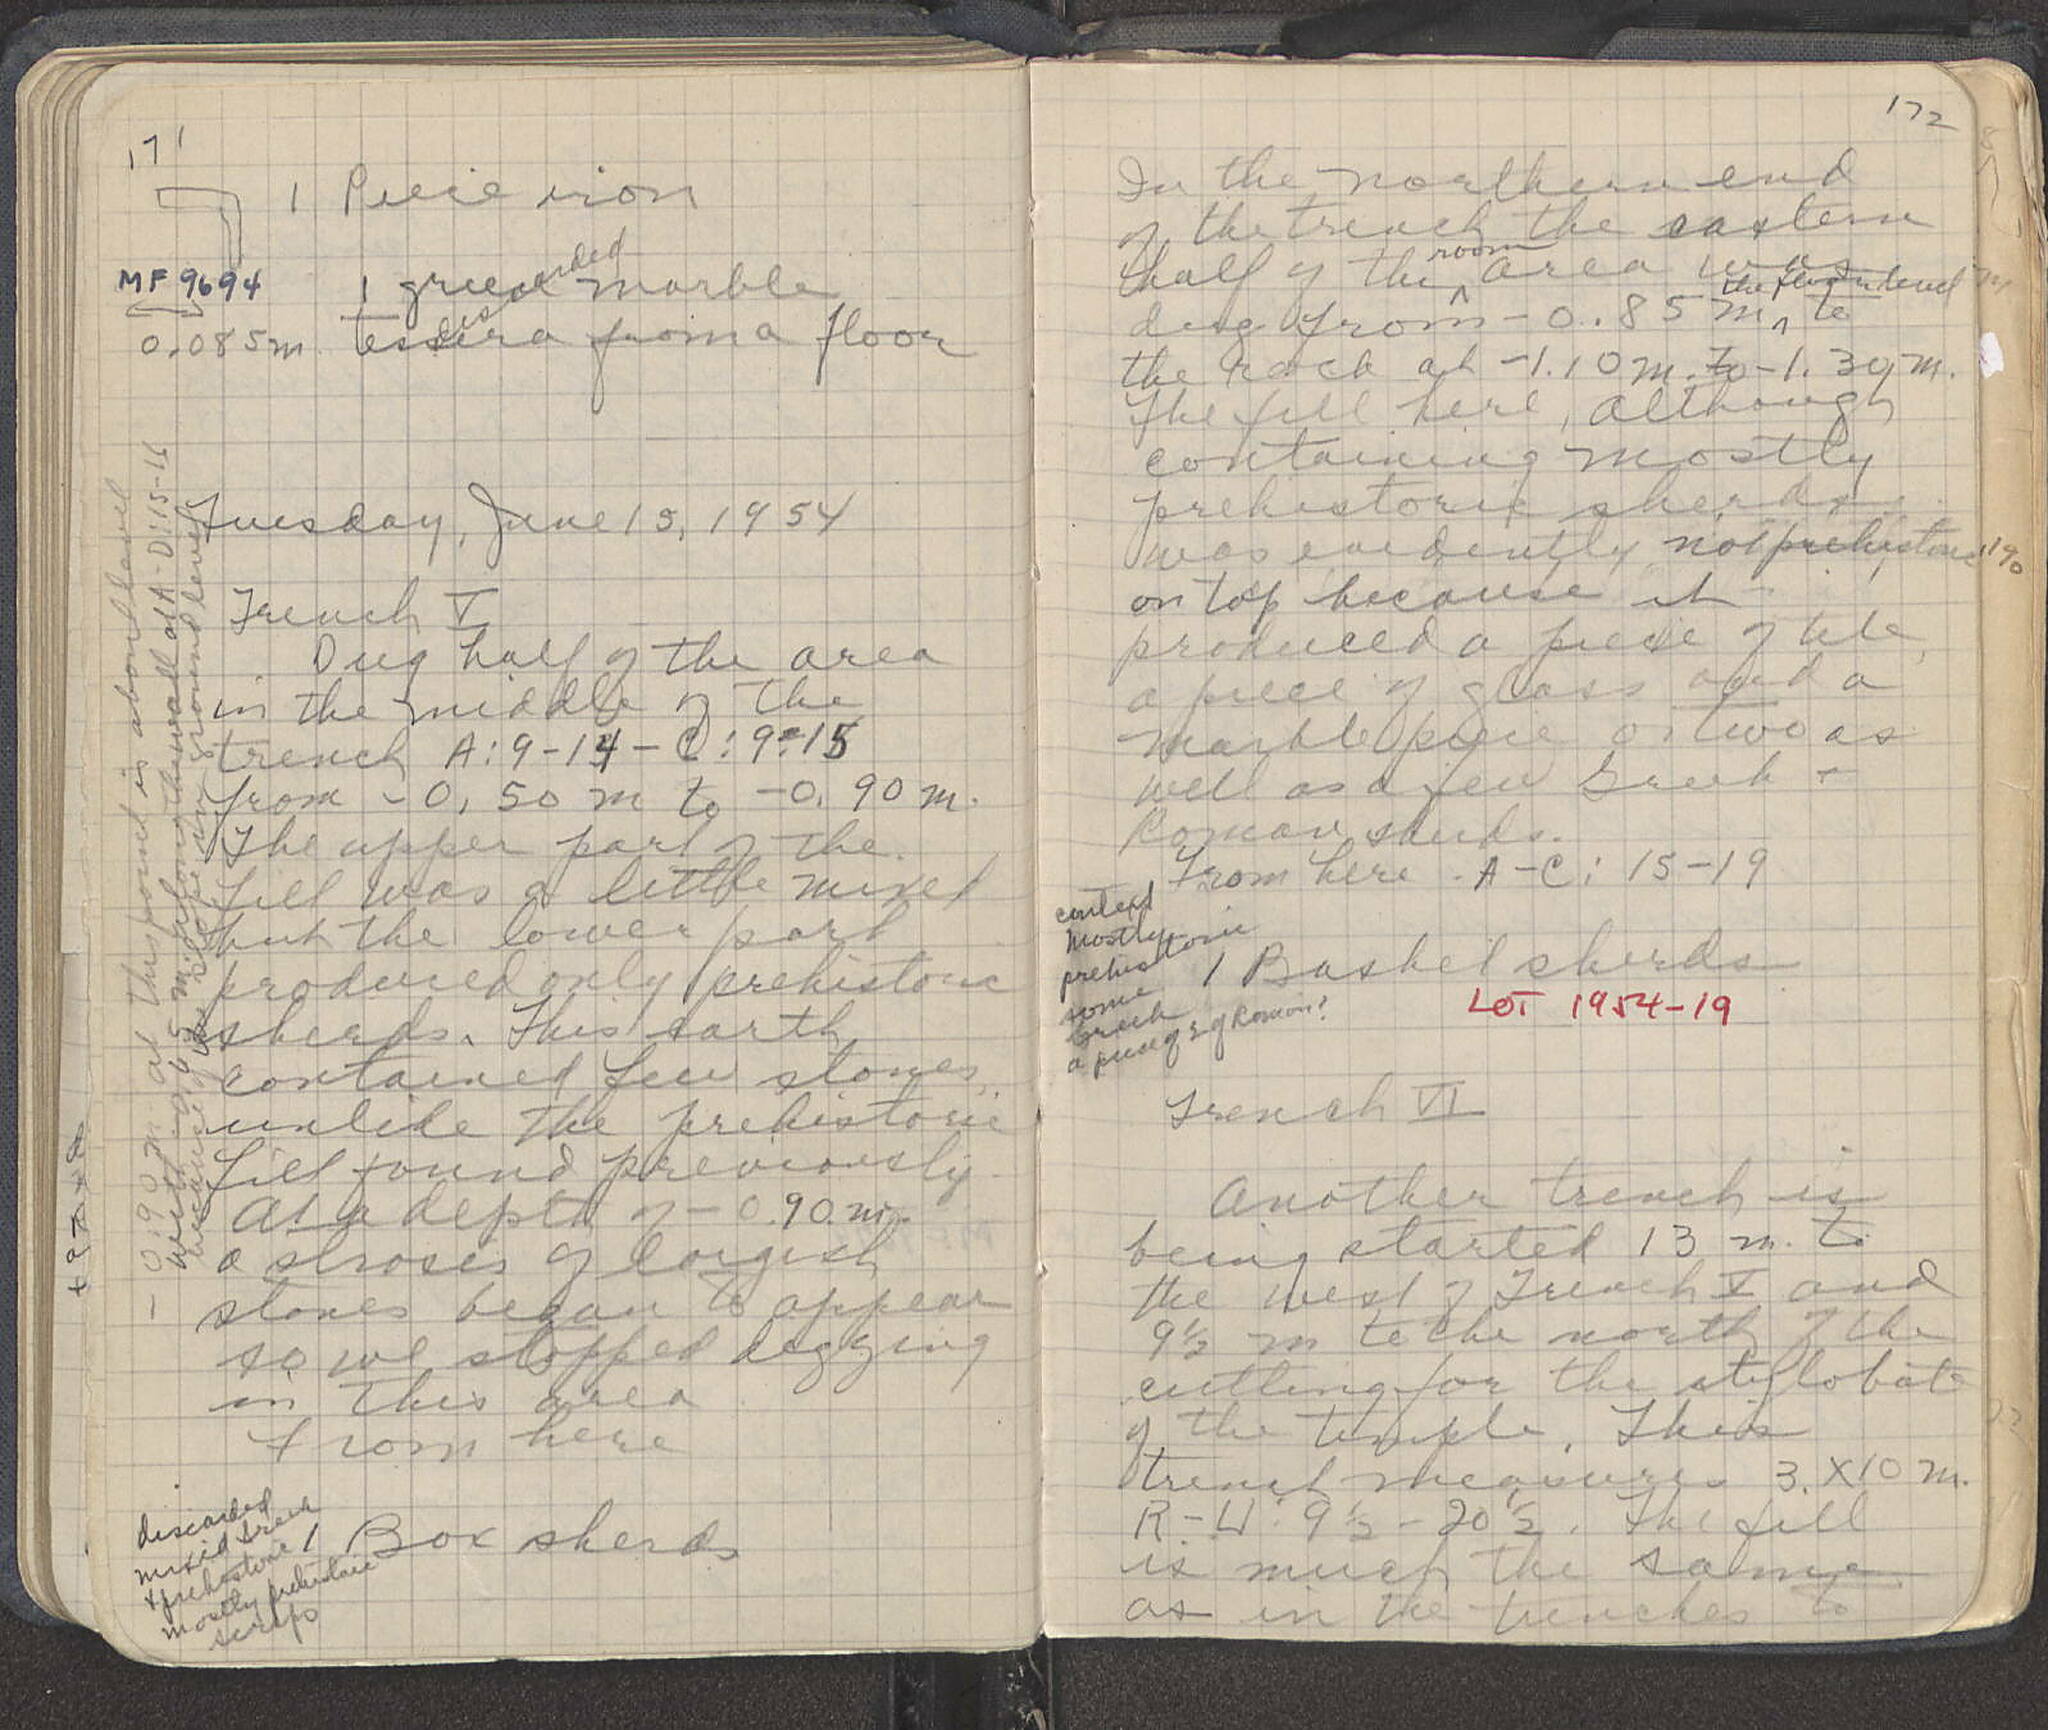 171
1 Piece iron
MF 9694
0.085m
1 green marble
discarded
tessera from a floor
Tuesday, June 15, 1954
Trench V
Dug half of the area
in the middle of the
trench A:9-14 - C:9-15
from -0.50 m to -0.90 m.
The upper part of the
fill was a little mixed
but the lower part
produced only prehistoric
sherds. This earth
contained few stones,
unlike the prehistoric
fill found previously.
At a depth of -0.90 m.
a stroses of largish
stones began to appear
so we stopped digging
in this area
From here
1 Box sherds
discarded
mixed Greek
+ prehistoric
mostly prehistoric
scraps
-0.90 m at this point is above level
with -0.45 m. along the wall at A-D:15-16
because of the slope in ground level
172
In the northern end
of the trench the eastern
half of the room area was
dug from -0.85 m, the floor level to
the rock at -1.10 m. to -1.39 m.
The fill here, although
containing mostly
prehistoric sherds
was evidently not prehistoric
on top because it
produced a piece of tile,
a piece of glass and a
marble piece or two as
well as a few Greek +
Roman sherds.
From here - A-C: 15-19
1 Basket sherds
LOT 1954-19
context
mostly
prehistoric
some
Greek
a piece or 2 of Roman?
Trench VI
Another trench is
being started 13 m. to
the west of Trench V and
9½ m to the north of the
cutting for the stylobate
of the temple. This
trench measures 3. X 10 m.
R-U: 9½ - 20½. The fill
is much the same
as in the trenches to